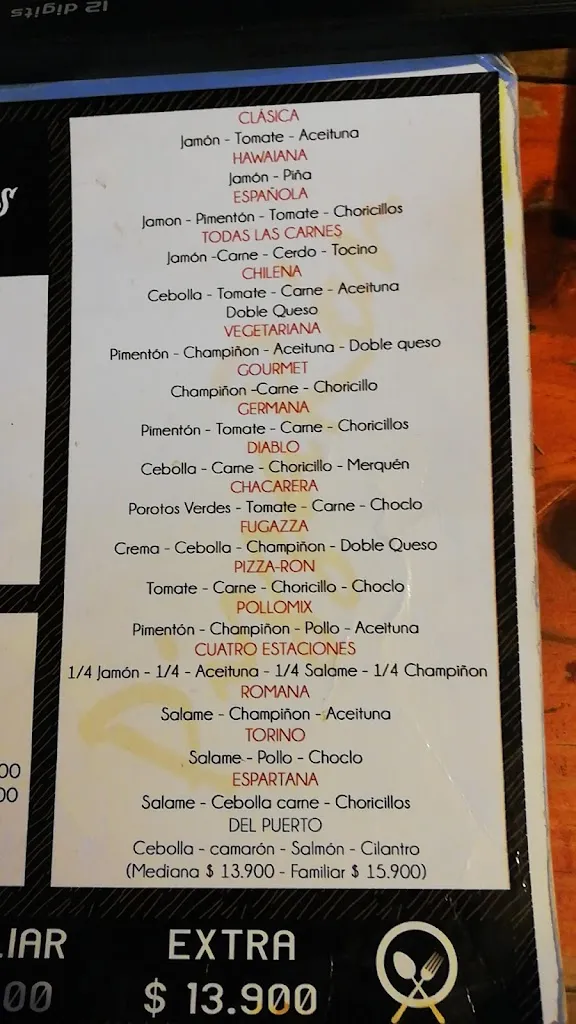 12 digits
CLÁSICA
Jamón - Tomate - Aceituna
HAWAIANA
Jamón - Piña
ESPAÑOLA
Jamon - Pimentón - Tomate - Choricillos
TODAS LAS CARNES
Jamón -Carne - Cerdo - Tocino
CHILENA
Cebolla - Tomate - Carne - Aceituna
Doble Queso
VEGETARIANA
Pimentón - Champiñon - Aceituna - Doble queso
GOURMET
Champiñon -Carne - Choricillo
GERMANA
Pimentón - Tomate - Carne - Choricillos
DIABLO
Cebolla - Carne - Choricillo - Merquén
CHACARERA
Porotos Verdes - Tomate - Carne - Choclo
FUGAZZA
Crema - Cebolla - Champiñon - Doble Queso
PIZZA-RON
Tomate - Carne - Choricillo - Choclo
POLLOMIX
Pimentón - Champiñon - Pollo - Aceituna
CUATRO ESTACIONES
1/4 Jamón - 1/4 - Aceituna - 1/4 Salame - 1/4 Champiñon
ROMANA
Salame - Champiñon - Aceituna
TORINO
Salame - Pollo - Choclo
ESPARTANA
Salame - Cebolla carne - Choricillos
DEL PUERTO
Cebolla - camarón - Salmón - Cilantro
(Mediana $ 13.900 - Familiar $ 15.900)
EXTRA
$ 13.900